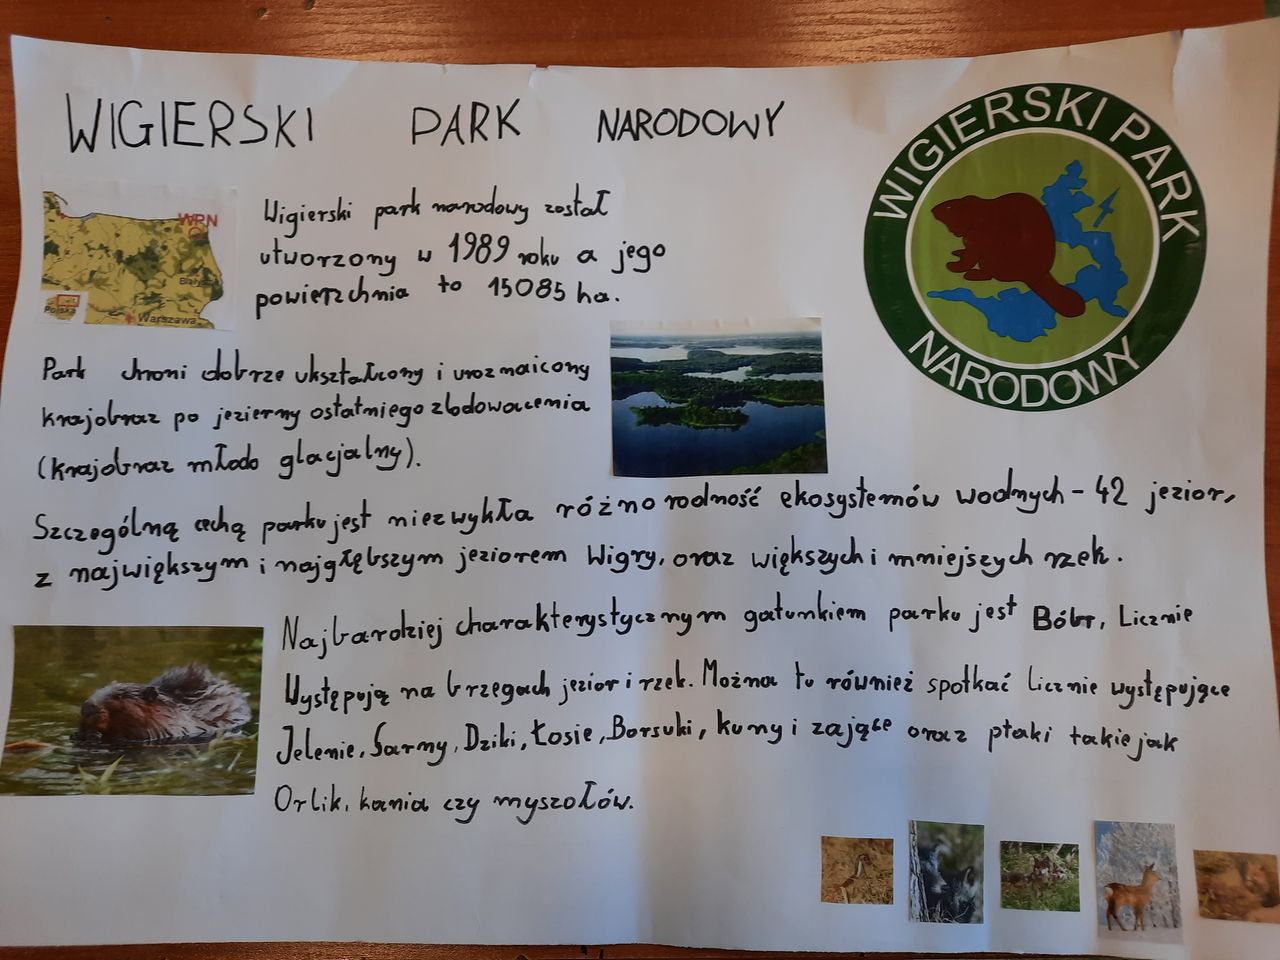 WIGIERSKI PARK NARODOWY
WIGIERSKI PARK
NARODOWY
WPN
Białys
Polska
Warszawa
Wigierski park narodowy został
utworzony w 1989 roku a jego
powierzchnia to 15085 ha.
Park chroni dobrze ukształcony i uroznaicony
krajobraz po jezierny ostatniego zlodowacenia
(krajobraz młodo glacjalny).
Szczególną cechą parku jest niezwykła różnorodność ekosystemów wodnych - 42 jezior,
z największym i najgłębszym jeziorem Wigry, oraz większych i mniejszych rzek.
Najbardziej charakterystycznym gatunkiem parku jest Bóbr, Licznie
Występują na brzegach jezior i rzek. Można tu również spotkać licznie występujące
Jelenie, Sarny, Dziki, Łosie, Borsuki, kuny i zające oraz ptaki takie jak
Orlik, kania czy myszołów.